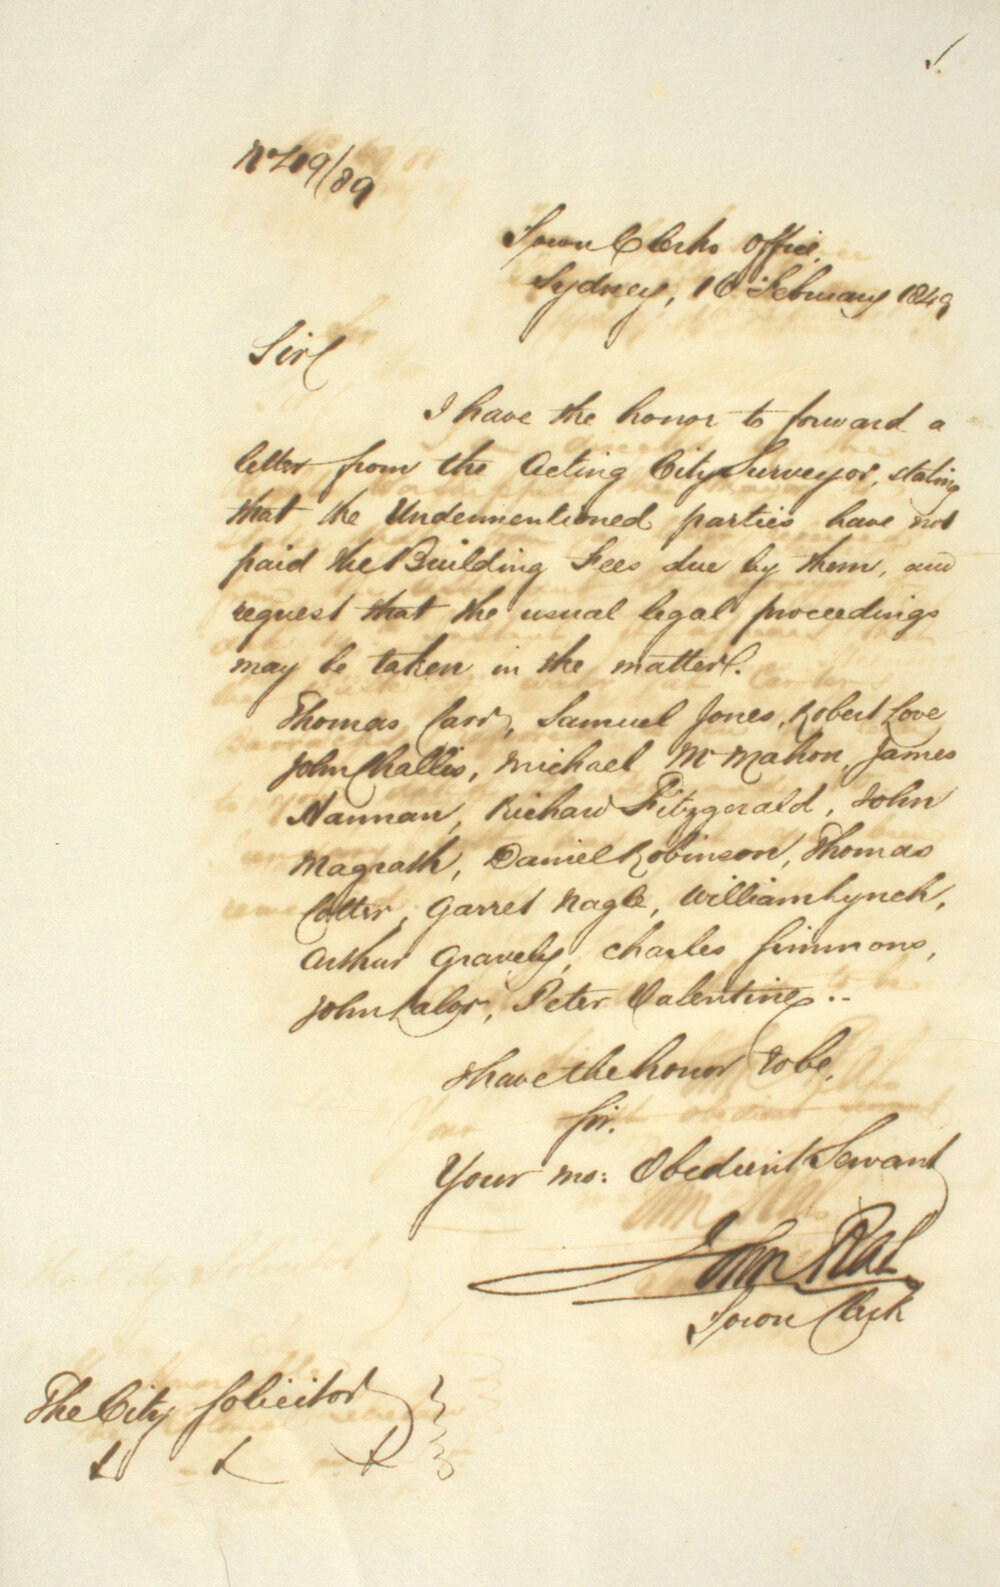 No 409/89
Town Clerks Office.
Sydney, 16 February 1849
Sir
I have the honor to forward a
letter from the Acting City Surveyor, stating
that the Undermentioned parties have not
paid the Building Fees due by them, and
request that the usual legal proceedings
may be taken in the matter.
Thomas Carr, Samuel Jones, Robert Love
John Challis, Michael McMahon, James
Hannan, Richard Fitzgerald, John
Magrath, Daniel Robinson, Thomas
Cotter, Garret Nagle, William Lynch,
Arthur Gravely, Charles Simmons,
John Lalor, Peter Valentine..
I have the honor to be,
Sir.
Your mo: Obedient Servant
John Rae
Town Clerk
The City Solicitor